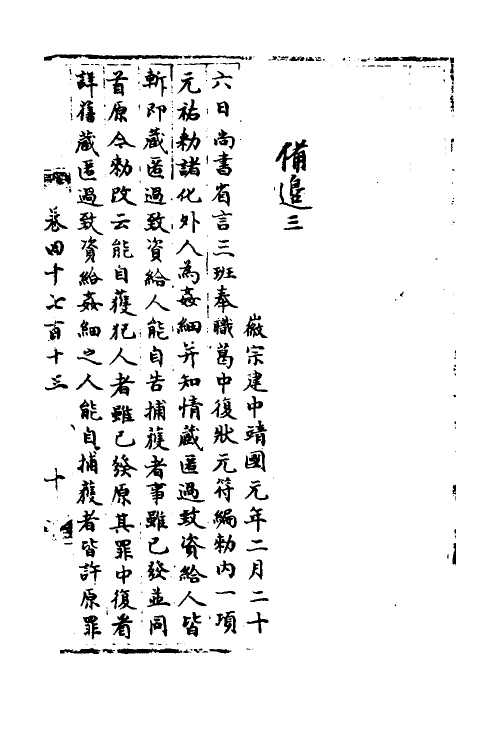 備邊三
徽宗建中靖國元年二月二十
六日尚書省言三班奉職葛中復狀元符編勑內一項
元祐勑諸化外人為姦細并知情藏匿過致資給人皆
斬即藏匿過致資給人能自告捕獲者事雖已發並同
首原今勑改云能自獲犯人者雖已發原其罪中復看
詳舊藏匿過致資給姦細之人能自捕獲者皆許原罪
卷四千七百十三
十